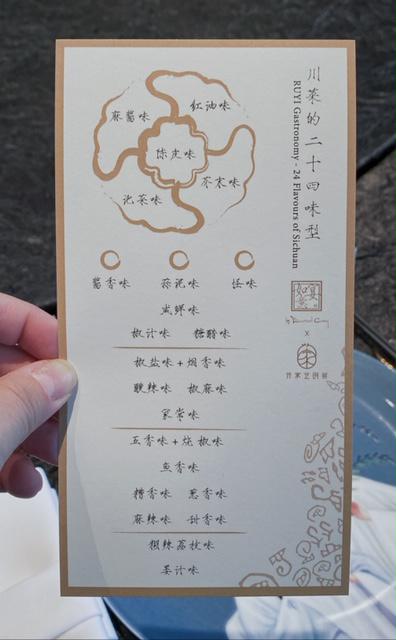 川菜的二十四味型
RUYI Gastronomy - 24 Flavours of Sichuan
麻酱味
红油味
陈皮味
芥末味
泡菜味
酱香味 蒜泥味 怪味
咸鲜味
椒汁味 糖醋味
椒盐味+烟香味
酸辣味 椒麻味
家常味
五香味+烧椒味
鱼香味
糟香味 葱香味
麻辣味 甜香味
煳辣荔枝味
姜汁味
x